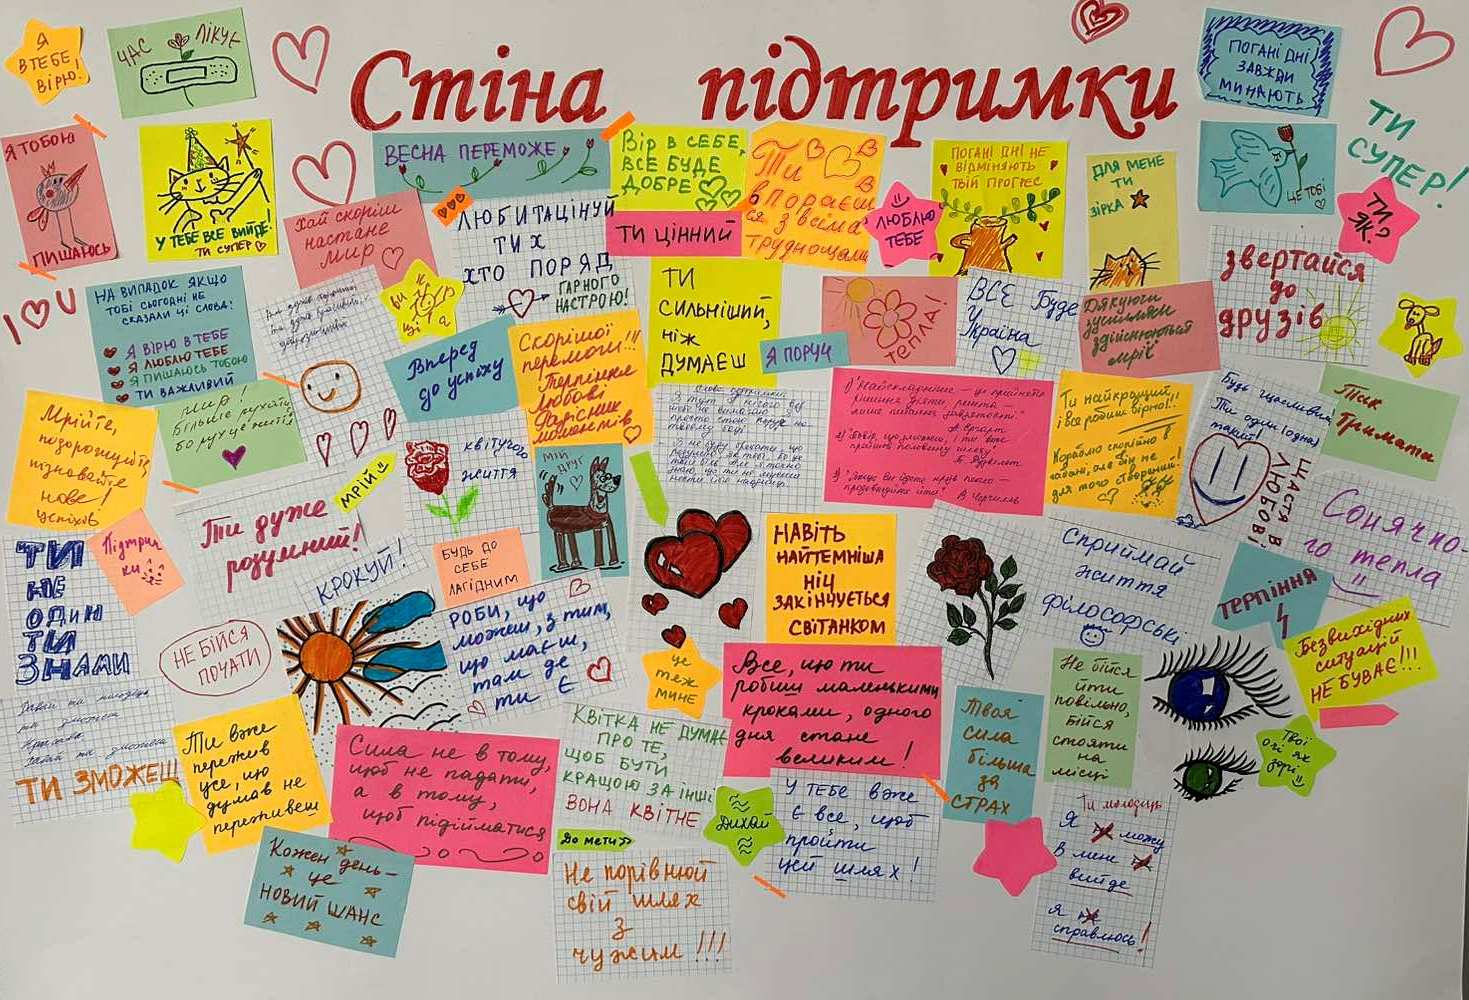 Стіна підтримки
Я
В ТЕБЕ
ВІРЮ!
ЧАС ЛІКУЄ
ПОГАНІ ДНІ
ЗАВЖДИ
МИНАЮТЬ
ТИ
СУПЕР!
Я ТОБОЮ
ПИШАЮСЬ
У ТЕБЕ ВСЕ ВИЙДЕ!
ТИ СУПЕР
ВЕСНА ПЕРЕМОЖЕ
Вір в СЕБЕ,
ВСЕ БУДЕ
ДОБРЕ
Ти
впораєш
ся з всіма
труднощами
ПОГАНІ ДНІ НЕ
ВІДМІНЯЮТЬ
ТВІЙ ПРОГРЕС
ДЛЯ МЕНЕ
ТИ
ЗІРКА
ЦЕ ТОБІ
ТИ
ЯК?
ХАЙ скоріш
настане
мир
ЛЮБИ ТАЦІНУЙ
ТИХ
ХТО ПОРЯД
ГАРНОГО
НАСТРОЮ!
ТИ ЦІННИЙ
ЛЮБЛЮ
ТЕБЕ
звертайся
до
друзів
I U
НА ВИПАДОК ЯКЩО
ТОБІ СЬОГОДНІ НЕ
СКАЗАЛИ ЦІ СЛОВА:
Я ВІРЮ В ТЕБЕ
Я ЛЮБЛЮ ТЕБЕ
Я ПИШАЮСЬ ТОБОЮ
ТИ ВАЖЛИВИЙ
Вперед
до успіху
Скорішої
перемоги!!!
Терпіння
Любові
Гарісних
моментів
ТИ
СИЛЬНІШИЙ,
НІЖ
ДУМАЄШ
Я ПОРУЧ
ТЕПЛА!
ВСЕ Буде
Україна
Дякуючи
зусиллям
здійснюються
мрії
Мрійте,
подорожуйте,
пізнавайте
нове!
успіхів
мир!
більше рухайтесь
бо рух це життя
МРІЙ
квітучого
життя
МІЙ
ДРУГ
Слова підтримки
1) "Найскладніше – це прийняти
рішення діяти, решта –
лише питання завзятості."
А. Ергарт
В. Черчилль
Ти найкращий,
і все робиш вірно!..
Кораблю спокійно в
гавані, але він не
для того створений!
Будь щасливим!
Ти один (одна)
такий!
ЩАСТЯ В
ЛЮБОВІ
Так
Тримати
Сонячно-
го тепла
ТИ
НЕ
ОДИН
ТИ
З НАМИ
Підтрим
ки
Ти дуже
розумний!
КРОКУЙ!
НЕ БІЙСЯ
ПОЧАТИ
БУДЬ ДО
СЕБЕ
ЛАГІДНИМ
РОБИ, що
можеш, з тим,
що маєш,
там де
ти є
НАВІТЬ
НАЙТЕМНІША
НІЧ
ЗАКІНЧУЄТЬСЯ
СВІТАНКОМ
Сприймай
життя
філософські
ТЕРПІННЯ
Безвихідних
ситуацій
НЕ БУВАЄ!!!
це
теж
мине
Все, що ти
робиш маленькими
кроками, одного
дня стане
великим!
Твоя
сила
більша
за
СТРАХ
Не бійся
йти
повільно,
бійся
стояти
на
місці
Твої
очі як
зорі
ТИ ЗМОЖЕШ
Ти вже
пережив
усе, що
думав не
переживеш
Сила не в тому,
щоб не падати,
а в тому,
щоб підійматися
КВІТКА НЕ ДУМАЄ
ПРО ТЕ,
ЩОБ БУТИ
КРАЩОЮ ЗА ІНШІ
ВОНА КВІТНЕ
До мети>>
Дихай
У тебе вже
є все, щоб
пройти
цей шлях!
Ти молодець
Я не можу
В мене не
вийде
Я не
справлюсь!
Кожен день –
це
НОВИЙ ШАНС
Не порівнюй
свій шлях
з
чужим !!!